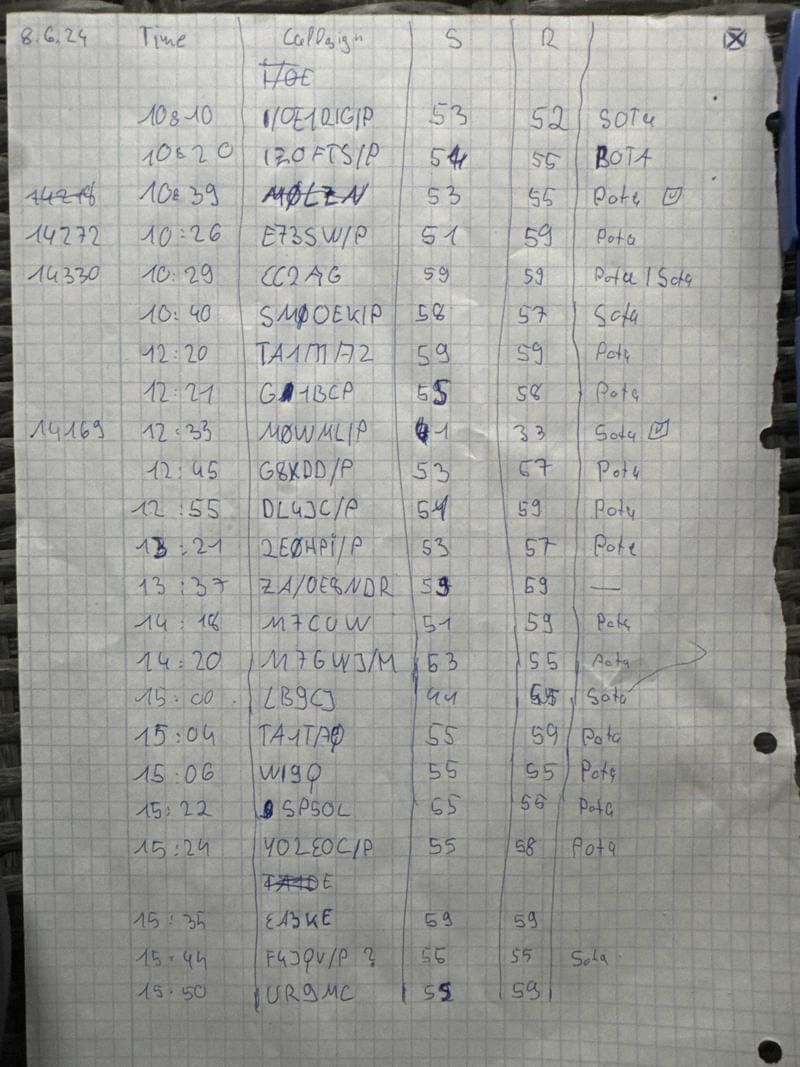 8.6.24 Time Callsign S R
I/OE
10:10 I/OE1RIG/P 53 52 SOTA
10:20 IZ0FTS/P 54 55 BOTA
14218 10:39 MØLZN 53 55 Pota
14272 10:26 E73SW/P 51 59 Pota
14330 10:29 CC2AG 59 59 Pota / Sota
10:40 SMØOEK/P 58 57 Sota
12:20 TA1M/72 59 59 Pota
12:21 G1BCP 55 58 Pota
14169 12:33 MØWML/P 41 33 Sota
12:45 G8XDD/P 53 57 Pota
12:55 DL4JC/P 54 59 Pota
13:21 2EØHPI/P 53 57 Pota
13:37 ZA/OE8NDR 59 59 —
14:18 M7CUW 51 59 Pota
14:20 M7GWJ/M 53 55 Pota
15:00 LB9CJ 44 55 Sota
15:04 TA1TAØ 55 59 Pota
15:06 W19Q 55 55 Pota
15:22 SP5OL 55 55 Pota
15:24 YO2EOC/P 55 58 Pota
15:35 EA3KE 59 59
15:44 F4JQV/P ? 55 55 Sota
15:50 UR9MC 55 59